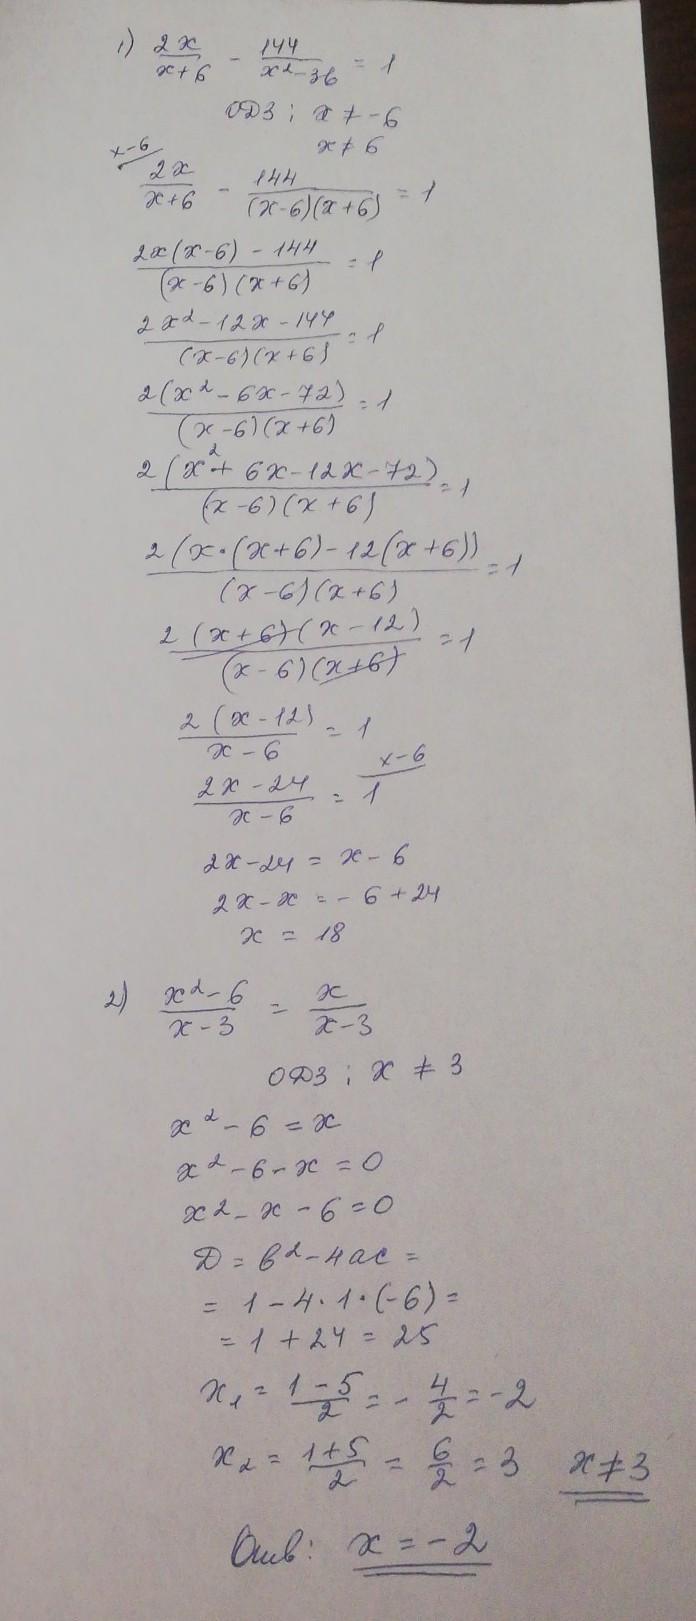 1) 2x/(x+6) - 144/(x²-36) = 1
ОДЗ; x ≠ -6
x ≠ 6
x-6/
2x/(x+6) - 144/((x-6)(x+6)) = 1
(2x(x-6) - 144)/((x-6)(x+6)) = 1
(2x²-12x-144)/((x-6)(x+6)) = 1
2(x²-6x-72)/((x-6)(x+6)) = 1
2(x²+6x-12x-72)/((x-6)(x+6)) = 1
2(x·(x+6)-12(x+6))/((x-6)(x+6)) = 1
2(x+6)(x-12)/((x-6)(x+6)) = 1
2(x-12)/(x-6) = 1
x-6/
(2x-24)/(x-6) = 1
2x-24 = x-6
2x-x = -6+24
x = 18
2) (x²-6)/(x-3) = x/(x-3)
ОДЗ; x ≠ 3
x²-6 = x
x²-6-x = 0
x²-x-6 = 0
D = b²-4ac =
= 1-4·1·(-6) =
= 1+24 = 25
x₁ = (1-5)/2 = -4/2 = -2
x₂ = (1+5)/2 = 6/2 = 3 x ≠ 3
Отв: x = -2